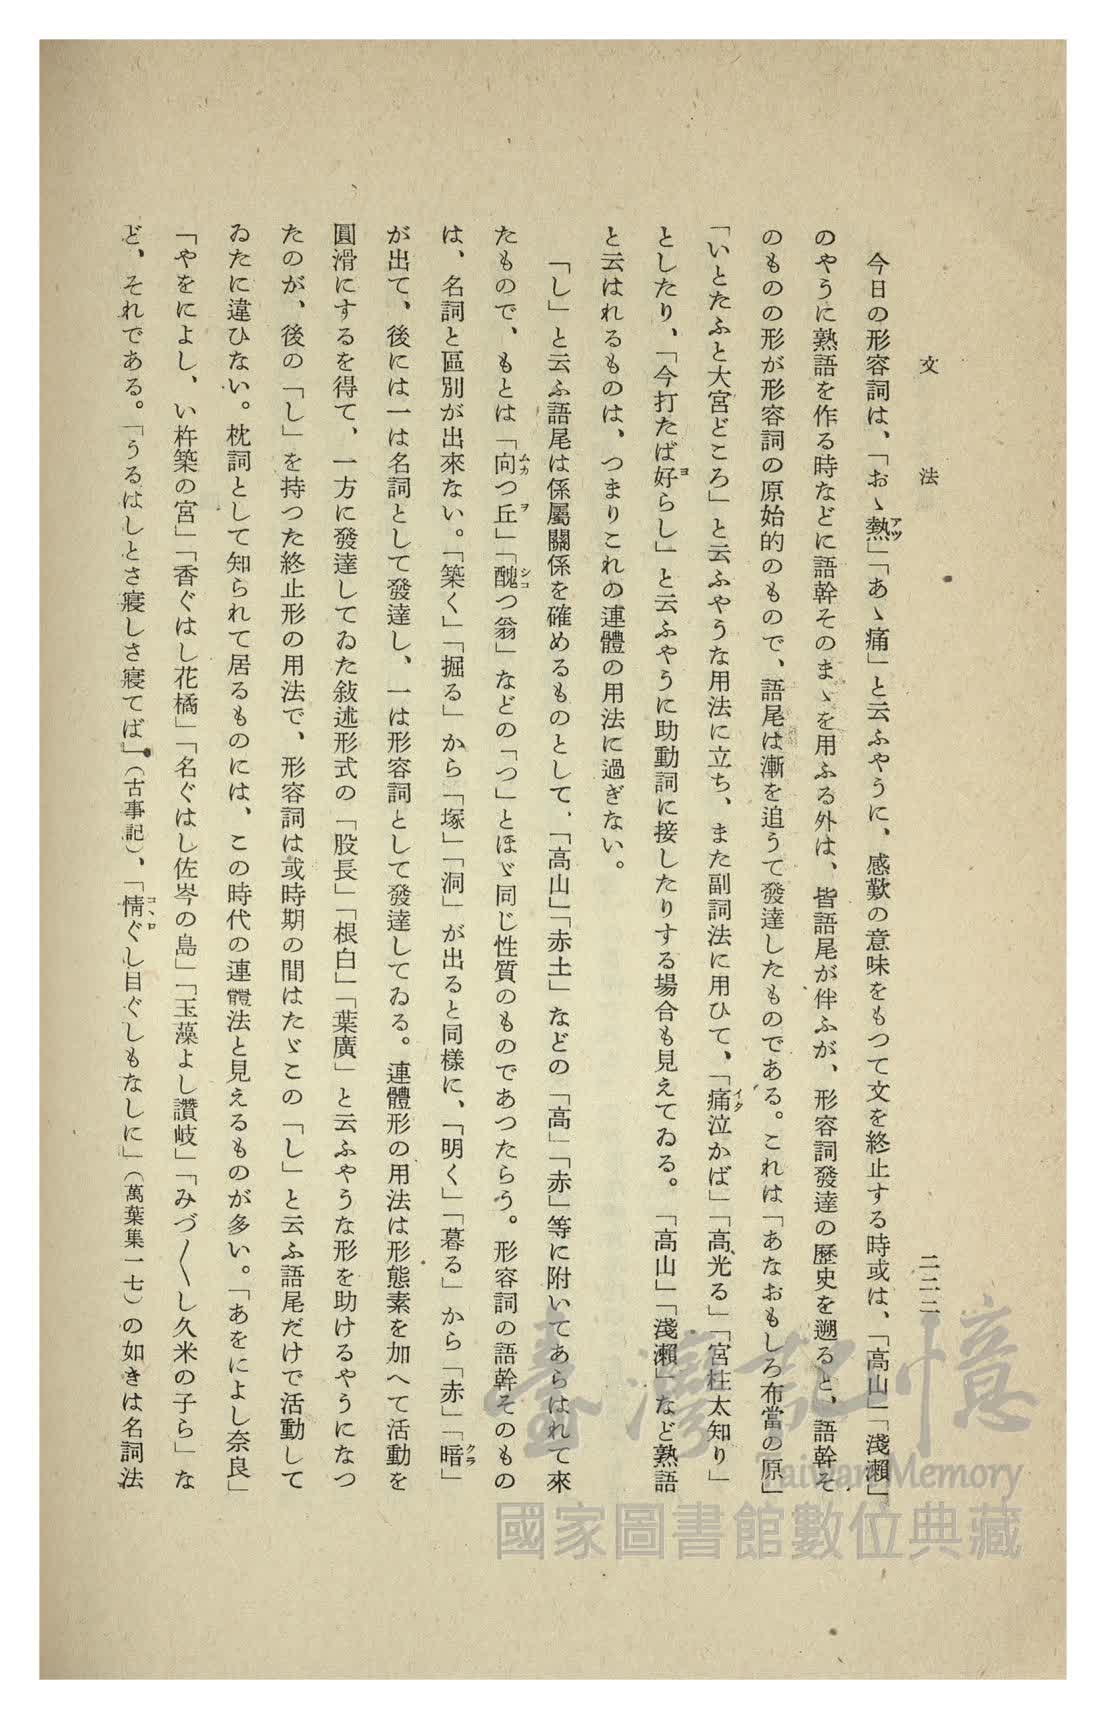 文法
二二二
今日の形容詞は、「おゝ熱」「あゝ痛」と云ふやうに、感歎の意味をもつて文を終止する時或は、「高山」「淺瀨」
のやうに熟語を作る時などに語幹そのまゝを用ふる外は、皆語尾が伴ふが、形容詞發達の歷史を遡ると、語幹そ
のものの形が形容詞の原始的のもので、語尾は漸を追うて發達したものである。これは「あなおもしろ布當の原」
「いとたふと大宮どころ」と云ふやうな用法に立ち、また副詞法に用ひて、「痛泣かば」「高光る」「宮柱太知り」
としたり、「今打たば好らし」と云ふやうに助動詞に接したりする場合も見えてゐる。「高山」「淺瀨」など熟語
と云はれるものは、つまりこれの連體の用法に過ぎない。
「し」と云ふ語尾は係屬關係を確めるものとして、「高山」「赤土」などの「高」「赤」等に附いてあらはれて來
たもので、もとは「向つ丘」「醜つ翁」などの「つ」とほゞ同じ性質のものであつたらう。形容詞の語幹そのもの
は、名詞と區別が出來ない。「築く」「掘る」から「塚」「洞」が出ると同樣に、「明く」「暮る」から「赤」「暗」
が出て、後には一は名詞として發達し、一は形容詞として發達してゐる。連體形の用法は形態素を加へて活動を
圓滑にするを得て、一方に發達してゐた敍述形式の「股長」「根白」「葉廣」と云ふやうな形を助けるやうになつ
たのが、後の「し」を持つた終止形の用法で、形容詞は或時期の間はたゞこの「し」と云ふ語尾だけで活動して
ゐたに違ひない。枕詞として知られて居るものには、この時代の連體法と見えるものが多い。「あをによし奈良」
「やをによし、い杵築の宮」「香ぐはし花橘」「名ぐはし佐岑の島」「玉藻よし讚岐」「みづ〱し久米の子ら」な
ど、それである。「うるはしとさ寢しさ寢てば」（古事記）、「情ぐし目ぐしもなしに」（萬葉集一七）の如きは名詞法
臺灣記憶
Taiwan Memory
國家圖書館數位典藏